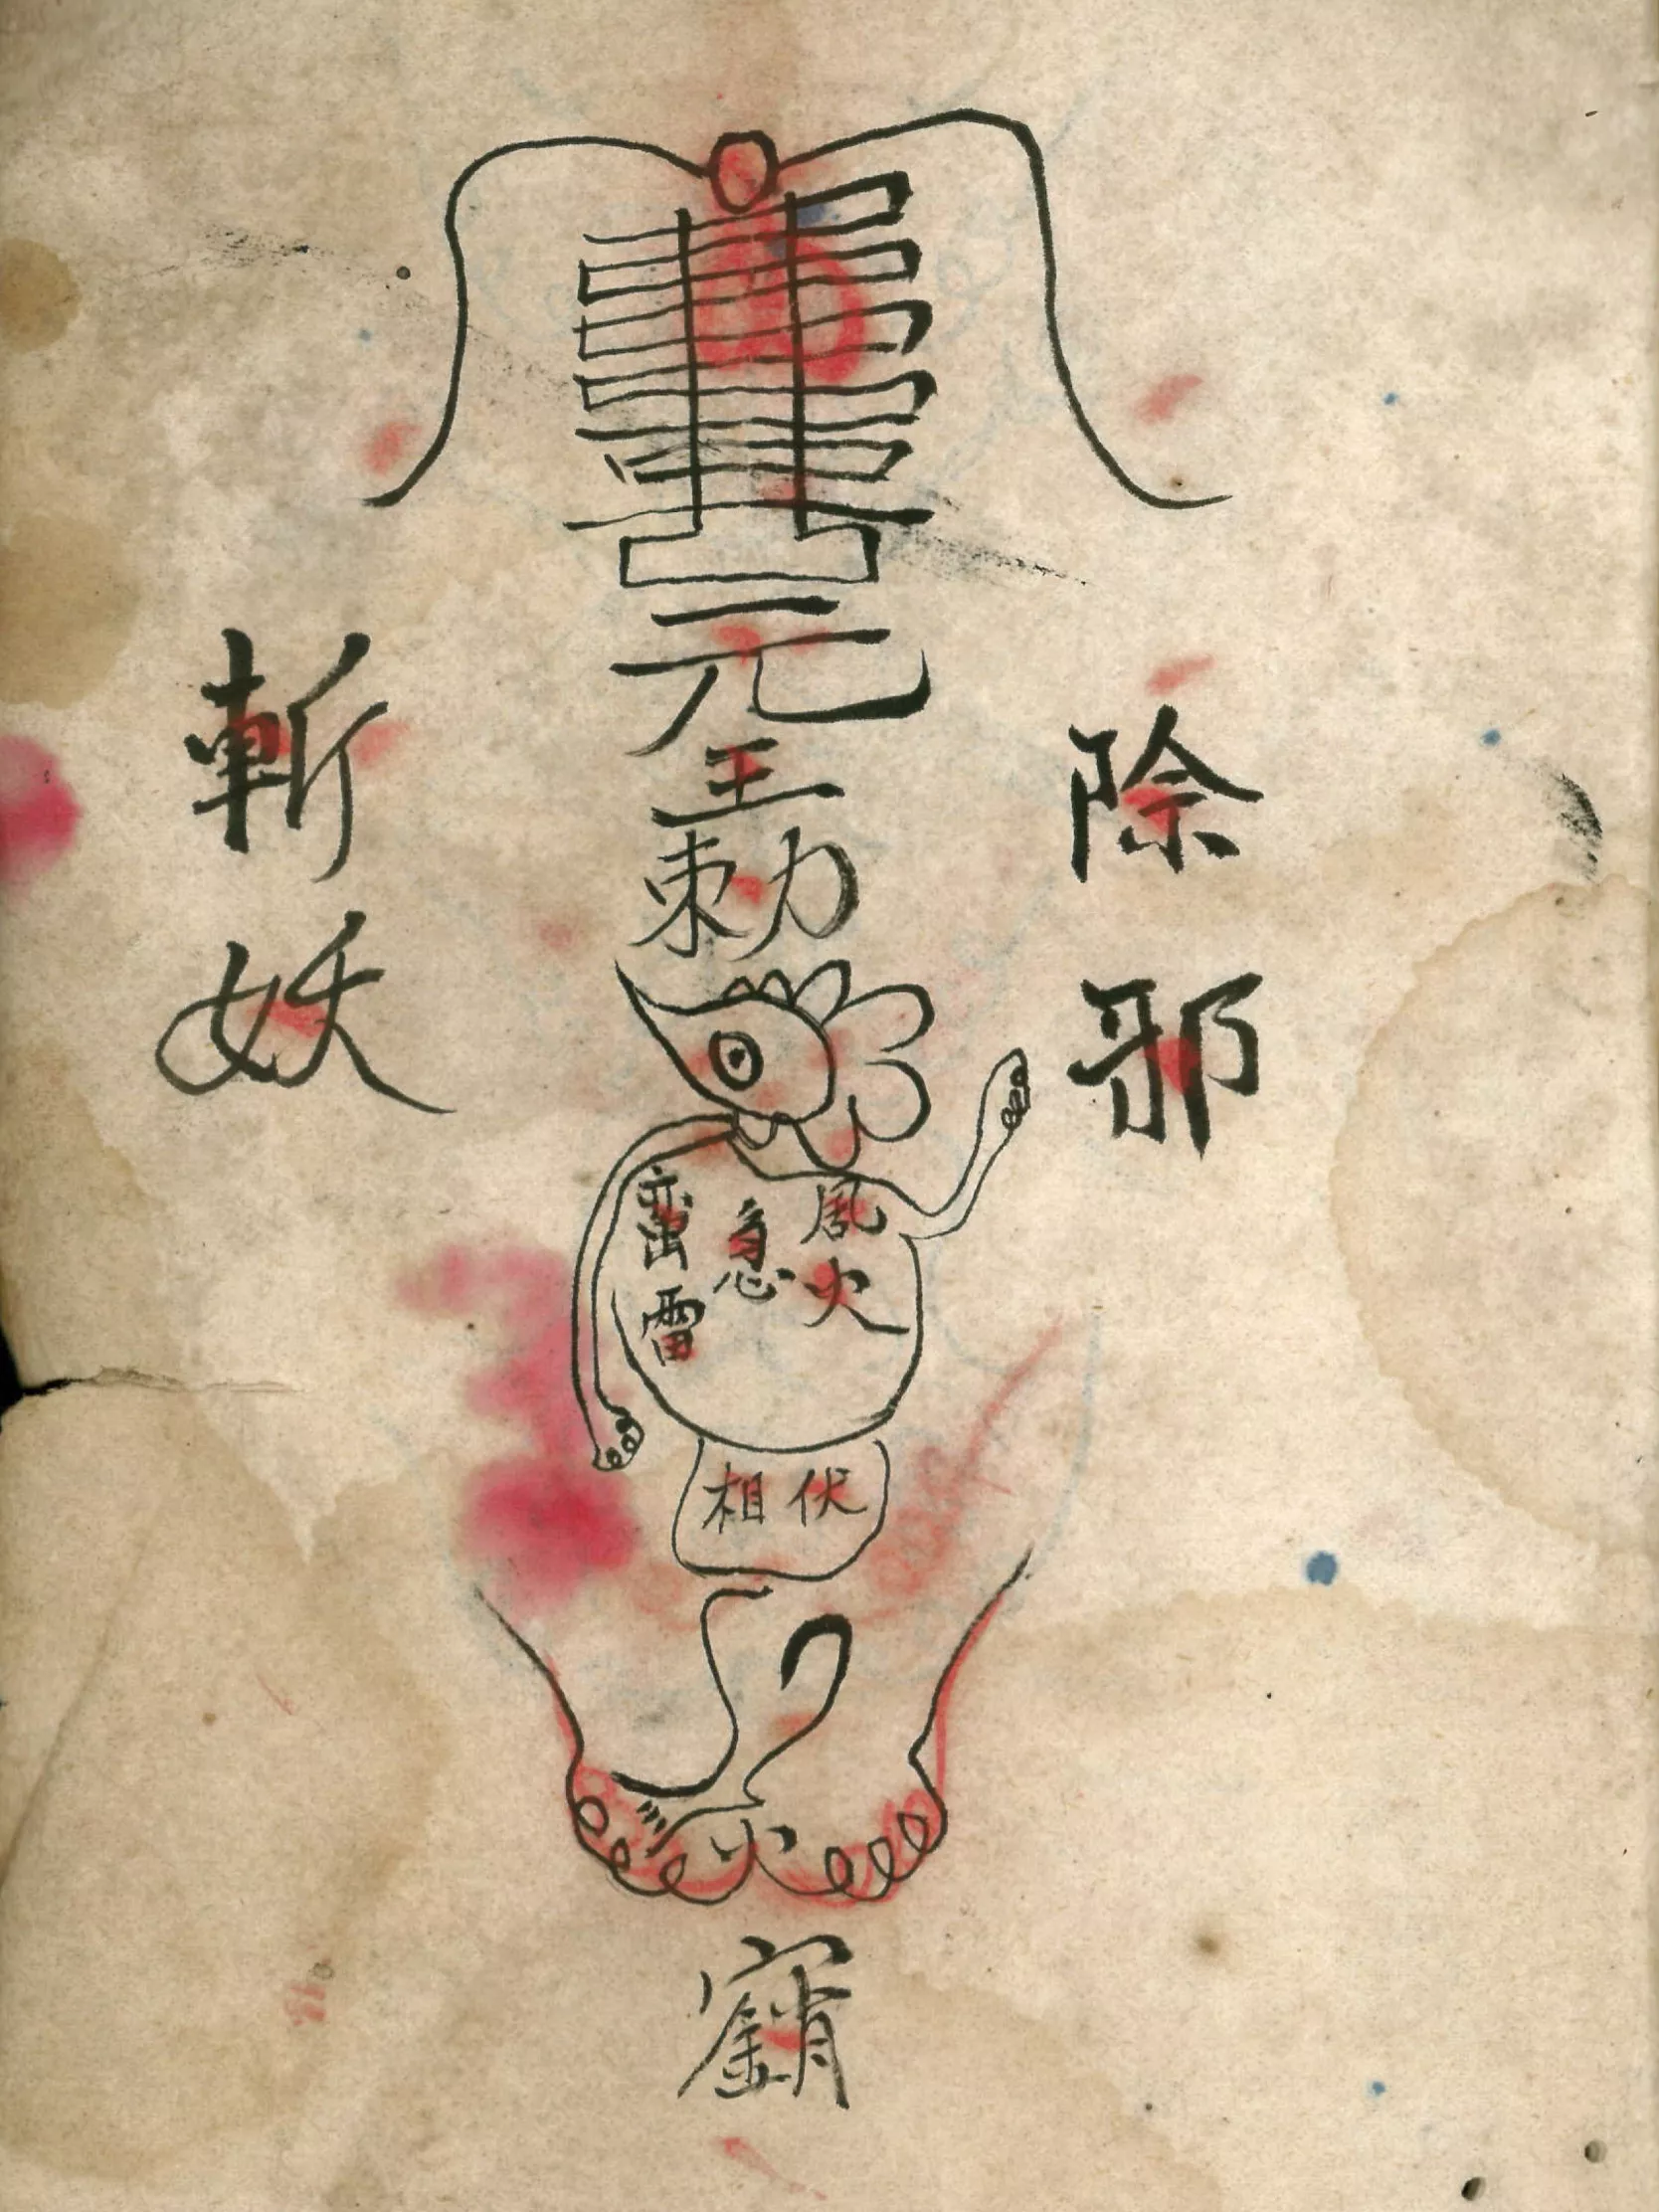 元
王
勅
除邪
斬妖
風火
急
雷
伏
相
火